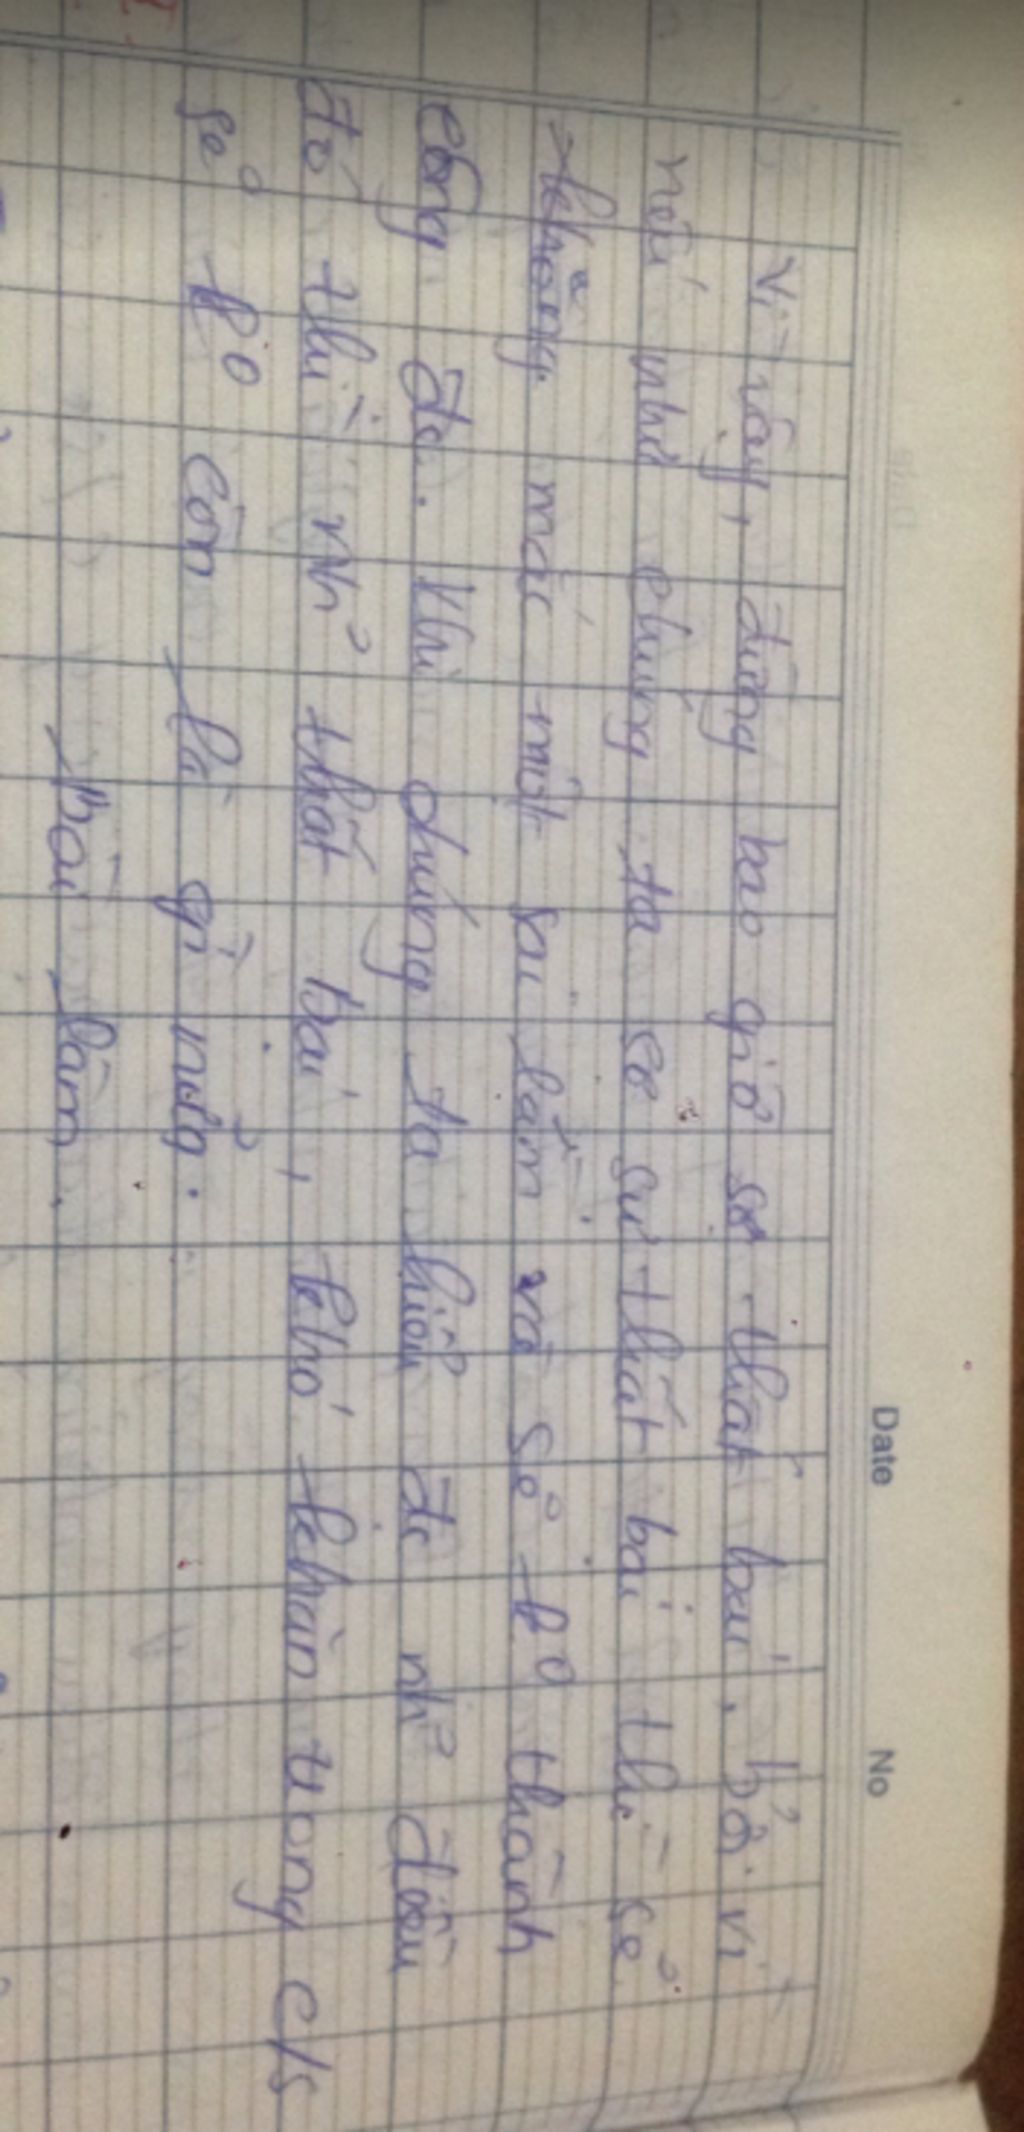 Date No
Vì vậy, đừng bao giờ sợ thất bại, bởi vì
nếu như chúng ta sợ sự thất bại thì sẽ
không mắc một sai lầm và sẽ k0 thành
công đc. Khi chúng ta hiểu đc nh~ điều
đó thì nh~ thất bại, khó khăn trong c/s
sẽ k0 còn là gì nữa.
Bài làm.